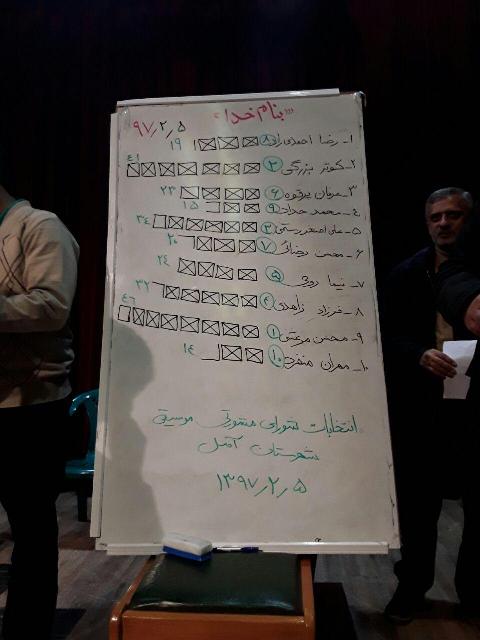 بنام خدا
۹۷٫۲٫۵
۱- رضا احمدی ۸ ۱۹
۲- کوثر بزرگی ۳ ۴۱
۳- عرفان ۶ ۲۳
۴- محمد حداد ۹ ۱۵
۵- علی اصغر رستمی ۳ ۳۴
۶- محسن رضا ۷ ۲۰
۷- نیما ۵ ۲۴
۸- فرزاد زاهدی ۴ ۳۲
۹- محسن مرعشی ۱ ۴۶
۱۰- مهران منفرد ۱۰ ۱۴
انتخابات شورای مشورتی موسیقی
شهرستان آمل
۱۳۹۷٫۲٫۵